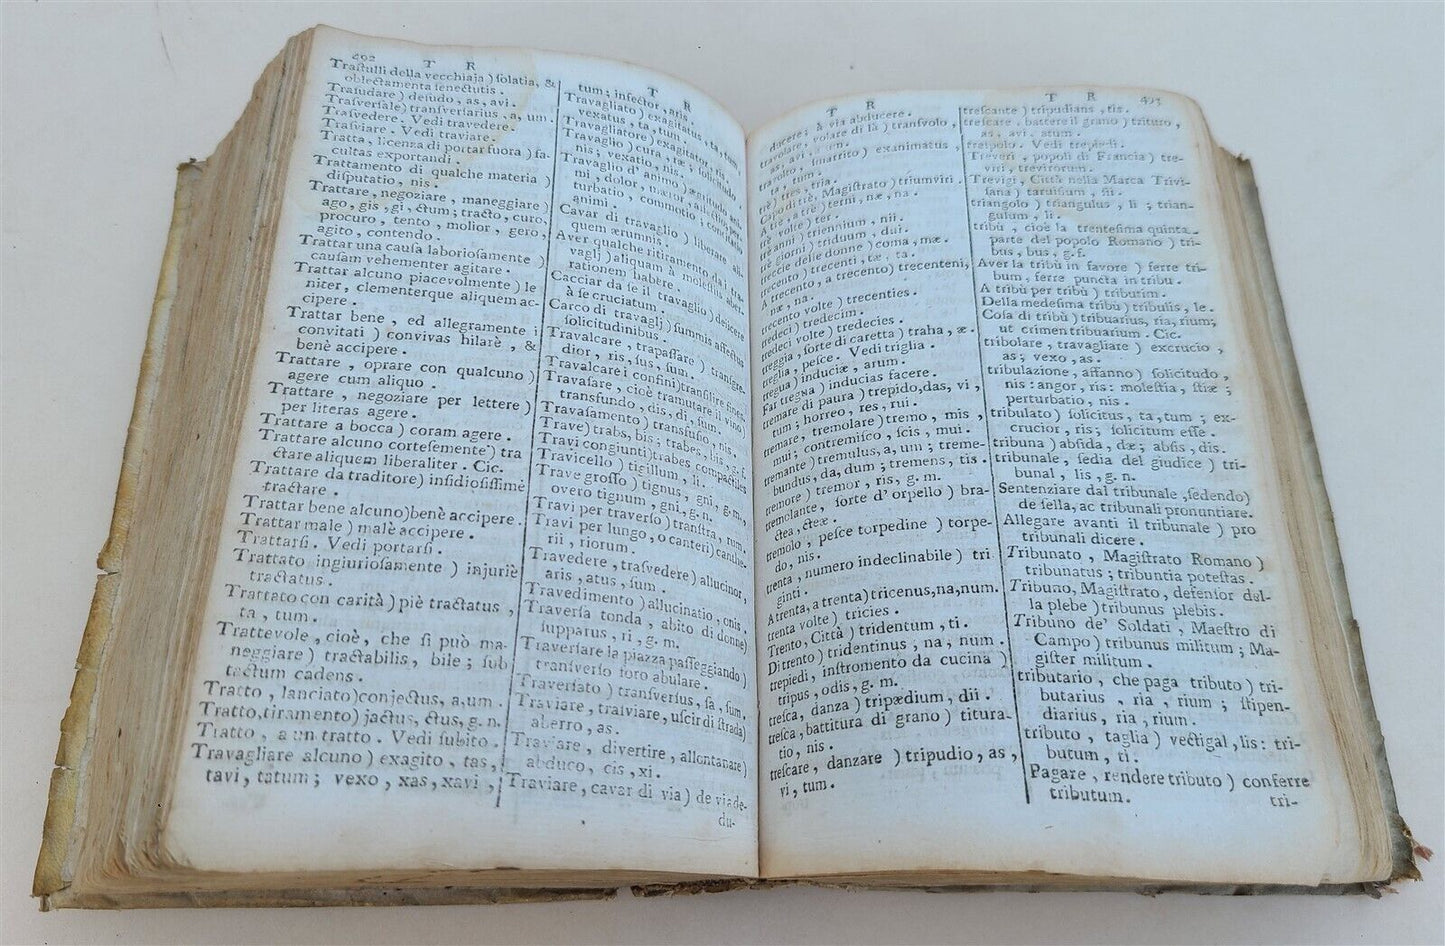 T R
Traſtulli della vecchiaja ) ſolatia, &
oblectamenta ſenectutis.
Traſudare ) deſudo, as, avi.
Traſverſale) tranſverſarius, a, um
Traſvedere. Vedi travedere.
Traſviare. Vedi traviare.
Tratta, licenza di portar fuora ) fa-
cultas exportandi.
Trattamento di qualche materia )
diſputatio, nis.
Trattare, negoziare, maneggiare )
ago, gis, gi, ctum; tracto, curo,
procuro, tento, molior, gero,
agito, contendo.
Trattar una cauſa laborioſamente )
cauſam vehementer agitare.
Trattar alcuno piacevolmente ) le
niter, clementerque aliquem ac-
cipere.
Trattar bene, ed allegramente i
convitati ) convivas hilarè, &
benè accipere.
Trattare, oprare con qualcuno )
agere cum aliquo.
Trattare, negoziare per lettere )
per literas agere.
Trattare a bocca ) coram agere.
Trattare alcuno corteſemente ) tra
ctare aliquem liberaliter. Cic.
Trattare da traditore) inſidioſiſſimè
tractare.
Trattar bene alcuno)benè accipere.
Trattar male ) malè accipere.
Trattarſi. Vedi portarſi.
Trattato ingiurioſamente ) injuriè
tractatus.
Trattato con carità ) piè tractatus,
ta, tum.
Trattevole, cioè, che ſi può ma-
neggiare ) tractabilis, bile; ſub
tactum cadens.
Tratto, lanciato)conjectus, a,um.
Tratto,tiramento) jactus, ctus, g. n.
Tratto, a un tratto. Vedi ſubito.
Travagliare alcuno) exagito, tas,
tavi, tatum; vexo, xas, xavi,
T R
tum; infector, aris.
Travagliato ) exagitatus, ta, tum,
vexatus, ta, tum.
Travagliatore) exagitator, ris.
Travaglio ) cura, ræ; ſolicitudo
nis; vexatio, nis.
Travaglio d' animo ) ægritudo ani
mi, dolor, mæror,
turbatio, commotio;
animi.
Cavar di travaglio ) liberare ali
quem ærumnis.
Aver qualche ritiramento da i tra-
vaglj ) aliquam à moleſtiis
rationem habere.
Cacciar da ſe il travaglio ) dejicere
à ſe cruciatum.
Carco di travaglj ) ſummis affectus
ſolicitudinibus.
Travalcare, trapaſſare ) tranſgre-
dior, ris, ſus, ſum.
Travalcare i confini)tranſilire fines.
Travaſare, cioè tramutare il vino)
transfundo, dis, di, ſum.
Travaſamento ) transfuſio, nis.
Trave) trabs, bis; trabes, bis, g. f.
Travi congiunti)trabes compactiles
Travicello ) tigillum, li.
Trave groſſo ) tignus, gni, g. m.,
overo tignum, gni, g. n.
Travi per traverſo ) tranſtra, rum.
Travi per lungo, o canterj ) canthe-
rii, riorum.
Travedere, traſvedere) allucinor,
aris, atus, ſum.
Travedimento ) allucinatio, onis.
Traverſa tonda, abito di donne)
ſupparus, ri, g. m.
Traverſare la piazza paſſeggiando )
tranſverſo foro abulare.
Traverſato ) tranſverſus, ſa, ſum.
Traviare, traſviare, uſcir di ſtrada)
aberro, as.
Traviare, divertire, allontanare)
abduco, cis, xi.
Traviare, cavar di via) de via de-
du-
T R
ducere; à via abducere.
travolare, volare di là ) tranſvolo,
as, avi, um.
ſmarrito ) exanimatus,
ta, tum.
tre) tres, tria.
Capo di trè, Magiſtrato) triumviri.
A trè, a trè ) terni, næ, na.
trè volte ) ter.
trè anni ) triennium, nii.
trè giorni ) triduum, dui.
treccie delle donne ) coma, mæ.
trecento ) trecenti, tæ, ta.
A trecento, a trecento) trecenteni,
næ, na.
trecento volte) trecenties.
tredeci ) tredecim.
tredeci volte) tredecies.
treggia, ſorte di caretta) traha, æ.
treglia, peſce. Vedi triglia.
tregua) induciæ, arum.
Far tregua ) inducias facere.
tremare di paura ) trepido,das, vi,
tum; horreo, res, rui.
tremare, tremolare) tremo, mis,
mui; contremiſco, ſcis, mui.
tremante) tremulus, a, um; treme-
bundus, da, dum; tremens, tis.
tremore) tremor, ris, g. m.
tremolante, ſorte d' orpello ) bra-
ctea, cteæ.
tremolo, peſce torpedine ) torpe-
do, nis.
trenta, numero indeclinabile) tri
ginti.
A trenta, a trenta) tricenus,na,num.
trenta volte) tricies.
Trento, Città ) tridentum, ti.
Di trento ) tridentinus, na, num.
trepiedi, inſtromento da cucina )
tripus, odis, g. m.
treſca, danza ) tripædium, dii.
treſca, battitura di grano ) titura-
tio, nis.
treſcare, danzare ) tripudio, as,
vi, tum.
T R 493
treſcante) tripudians, tis.
treſcare, battere il grano) trituro,
as, avi, atum.
treſpolo. Vedi trepiedi.
Treveri, popoli di Francia ) tre-
viri, trevirorum.
Trevigi, Città nella Marca Trivi-
ſana ) tarviſium, ſii.
triangolo ) triangulus, li; trian-
gulum, li.
tribù, cioè la trenteſima quinta
parte del popolo Romano ) tri-
bus, bus, g. f.
Aver la tribù in favore ) ferre tri-
bum, ferre puncta in tribu.
A tribù per tribù) tributim.
Della medeſima tribù) tribulis, le.
Coſa di tribù) tribuarius, ria, rium;
ut crimen tribuarium. Cic.
tribolare, travagliare) excrucio,
as; vexo, as.
tribulazione, affanno) ſolicitudo,
nis: angor, ris: moleſtia, ſtiæ;
perturbatio, nis.
tribulato) ſolicitus, ta, tum; ex-
crucior, ris; ſolicitum eſſe.
tribuna) abſida, dæ; abſis, dis.
tribunale, ſedia del giudice ) tri-
bunal, lis, g. n.
Sentenziare dal tribunale, ſedendo)
de ſella, ac tribunali pronuntiare.
Allegare avanti il tribunale ) pro
tribunali dicere.
Tribunato, Magiſtrato Romano )
tribunatus; tribuntia poteſtas.
Tribuno, Magiſtrato, defenſor del-
la plebe ) tribunus plebis.
Tribuno de' Soldati, Maeſtro di
Campo) tribunus militum; Ma-
giſter militum.
tributario, che paga tributo ) tri-
butarius, ria, rium; ſtipen-
diarius, ria, rium.
tributo, taglia) vectigal, lis: tri-
butum, ti.
Pagare, rendere tributo ) conferre
tributum.
tri-